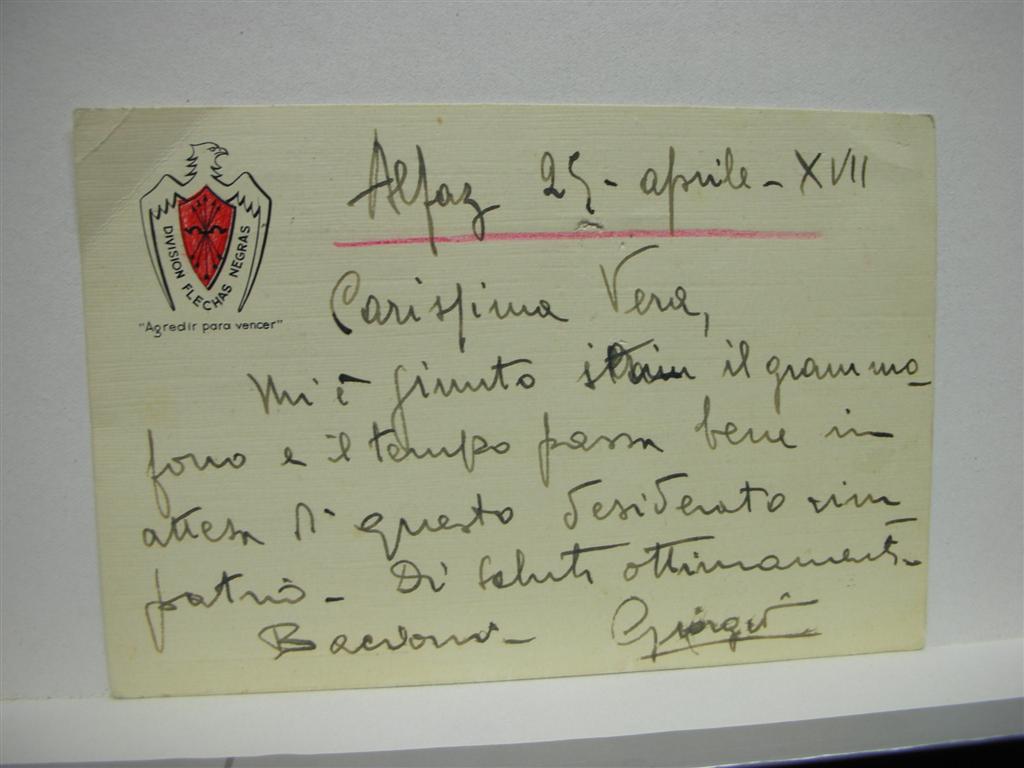 DIVISION FLECHAS NEGRAS
"Agredir para vencer"
Alfaz 25 - aprile - XVII
Carissima Vera,
Mi è giunto il grammo
fono e il tempo passa bene in
attesa di questo desiderato rim
patrio - Di salute ottimamente -
Bacioni - Giorgio